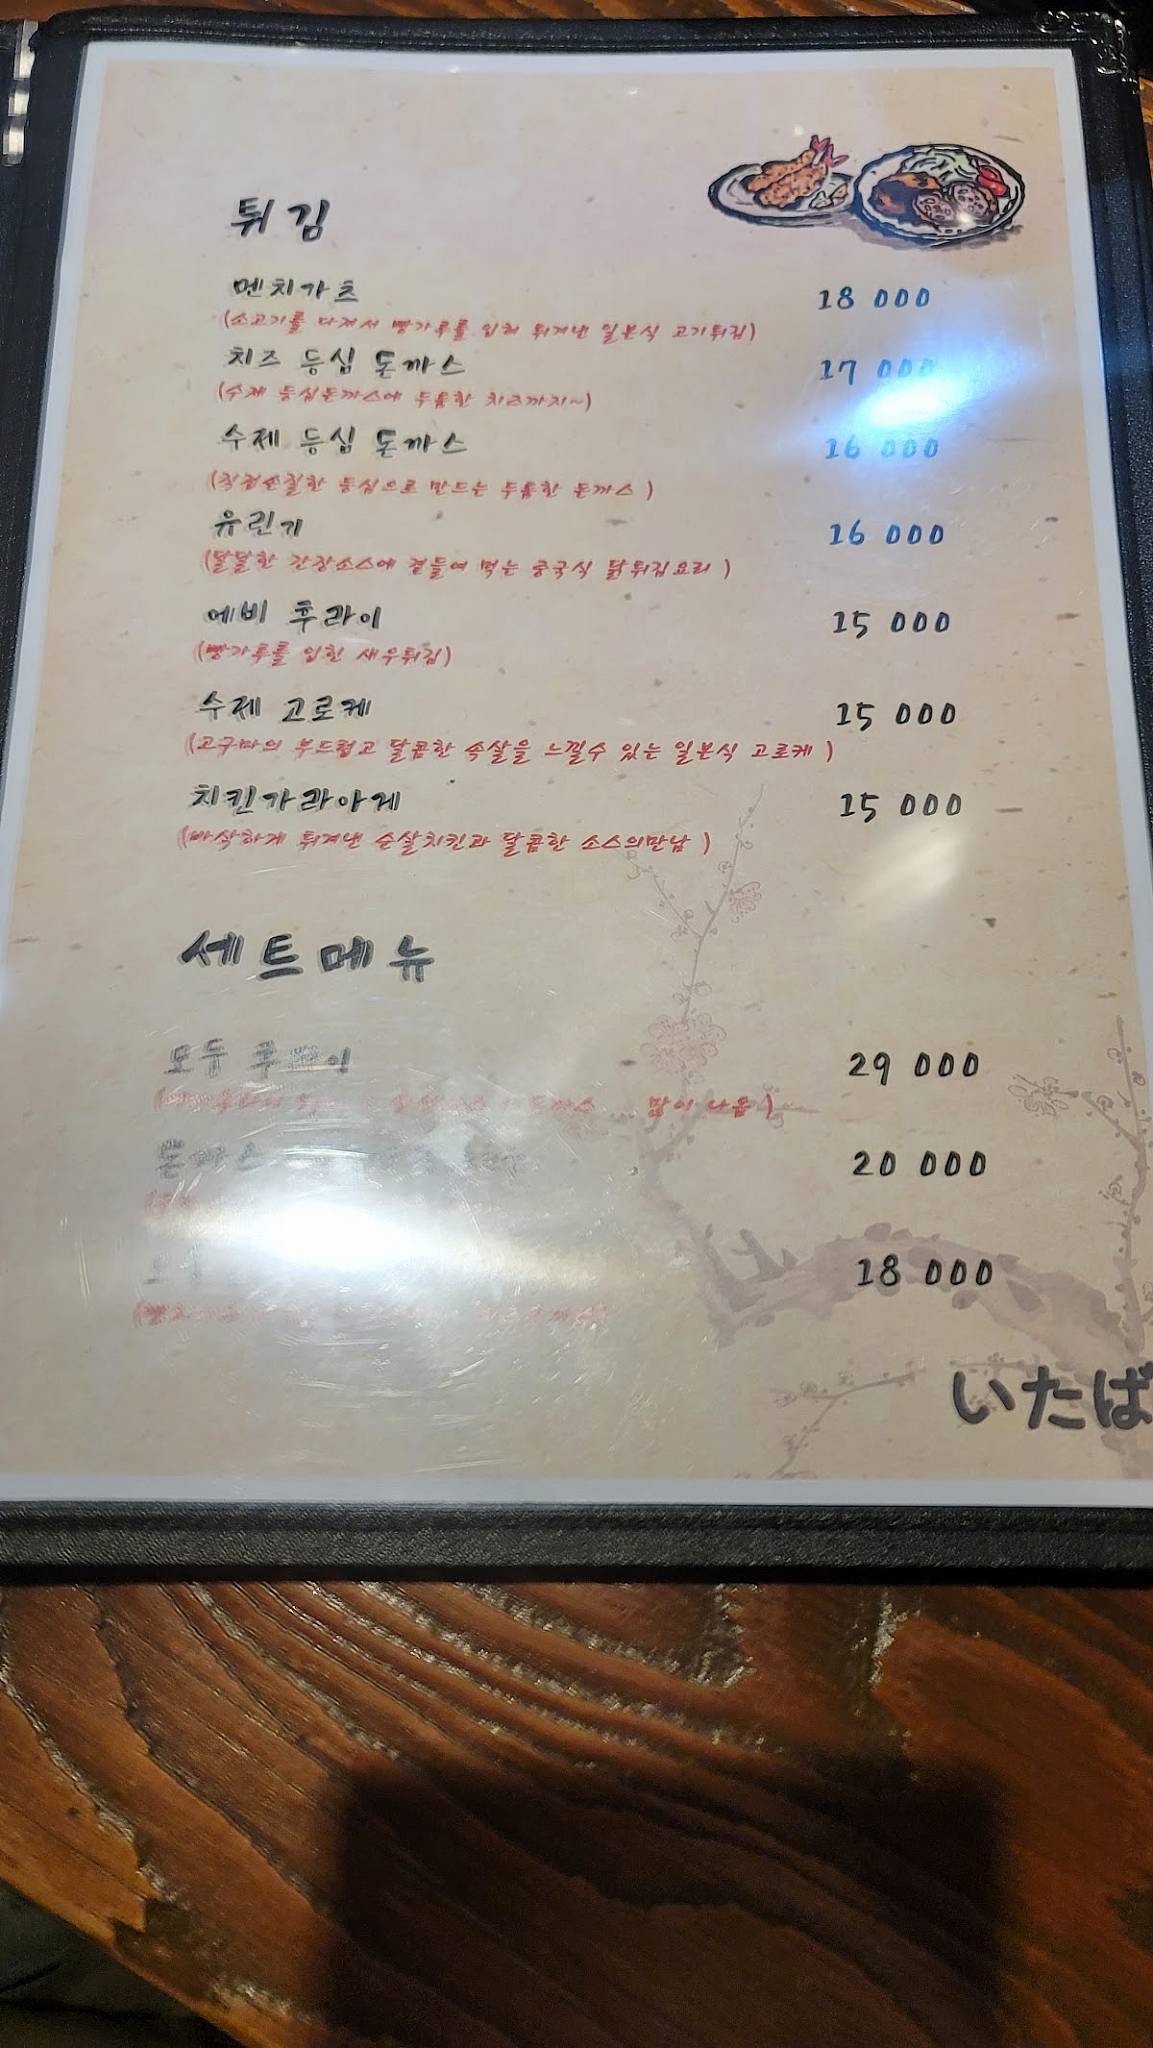 튀김
멘치가츠 18 000
(소고기를 다져서 빵가루를 입혀 튀겨낸 일본식 고기튀김)
치즈 등심 돈까스 17 000
(수제 등심돈까스에 두툼한 치즈까지~)
수제 등심 돈까스 16 000
(직접손질한 등심으로 만드는 두툼한 돈까스 )
유린기 16 000
(달달한 간장소스에 곁들여 먹는 중국식 닭튀김요리 )
에비 후라이 15 000
(빵가루를 입힌 새우튀김)
수제 고로케 15 000
(고구마의 부드럽고 달콤한 속살을 느낄수 있는 일본식 고로케 )
치킨가라아게 15 000
(바삭하게 튀겨낸 순살치킨과 달콤한 소스의만남 )
세트메뉴
모둠 후라이 29 000
많이 나옴 )
돈까스 20 000
18 000
いたば